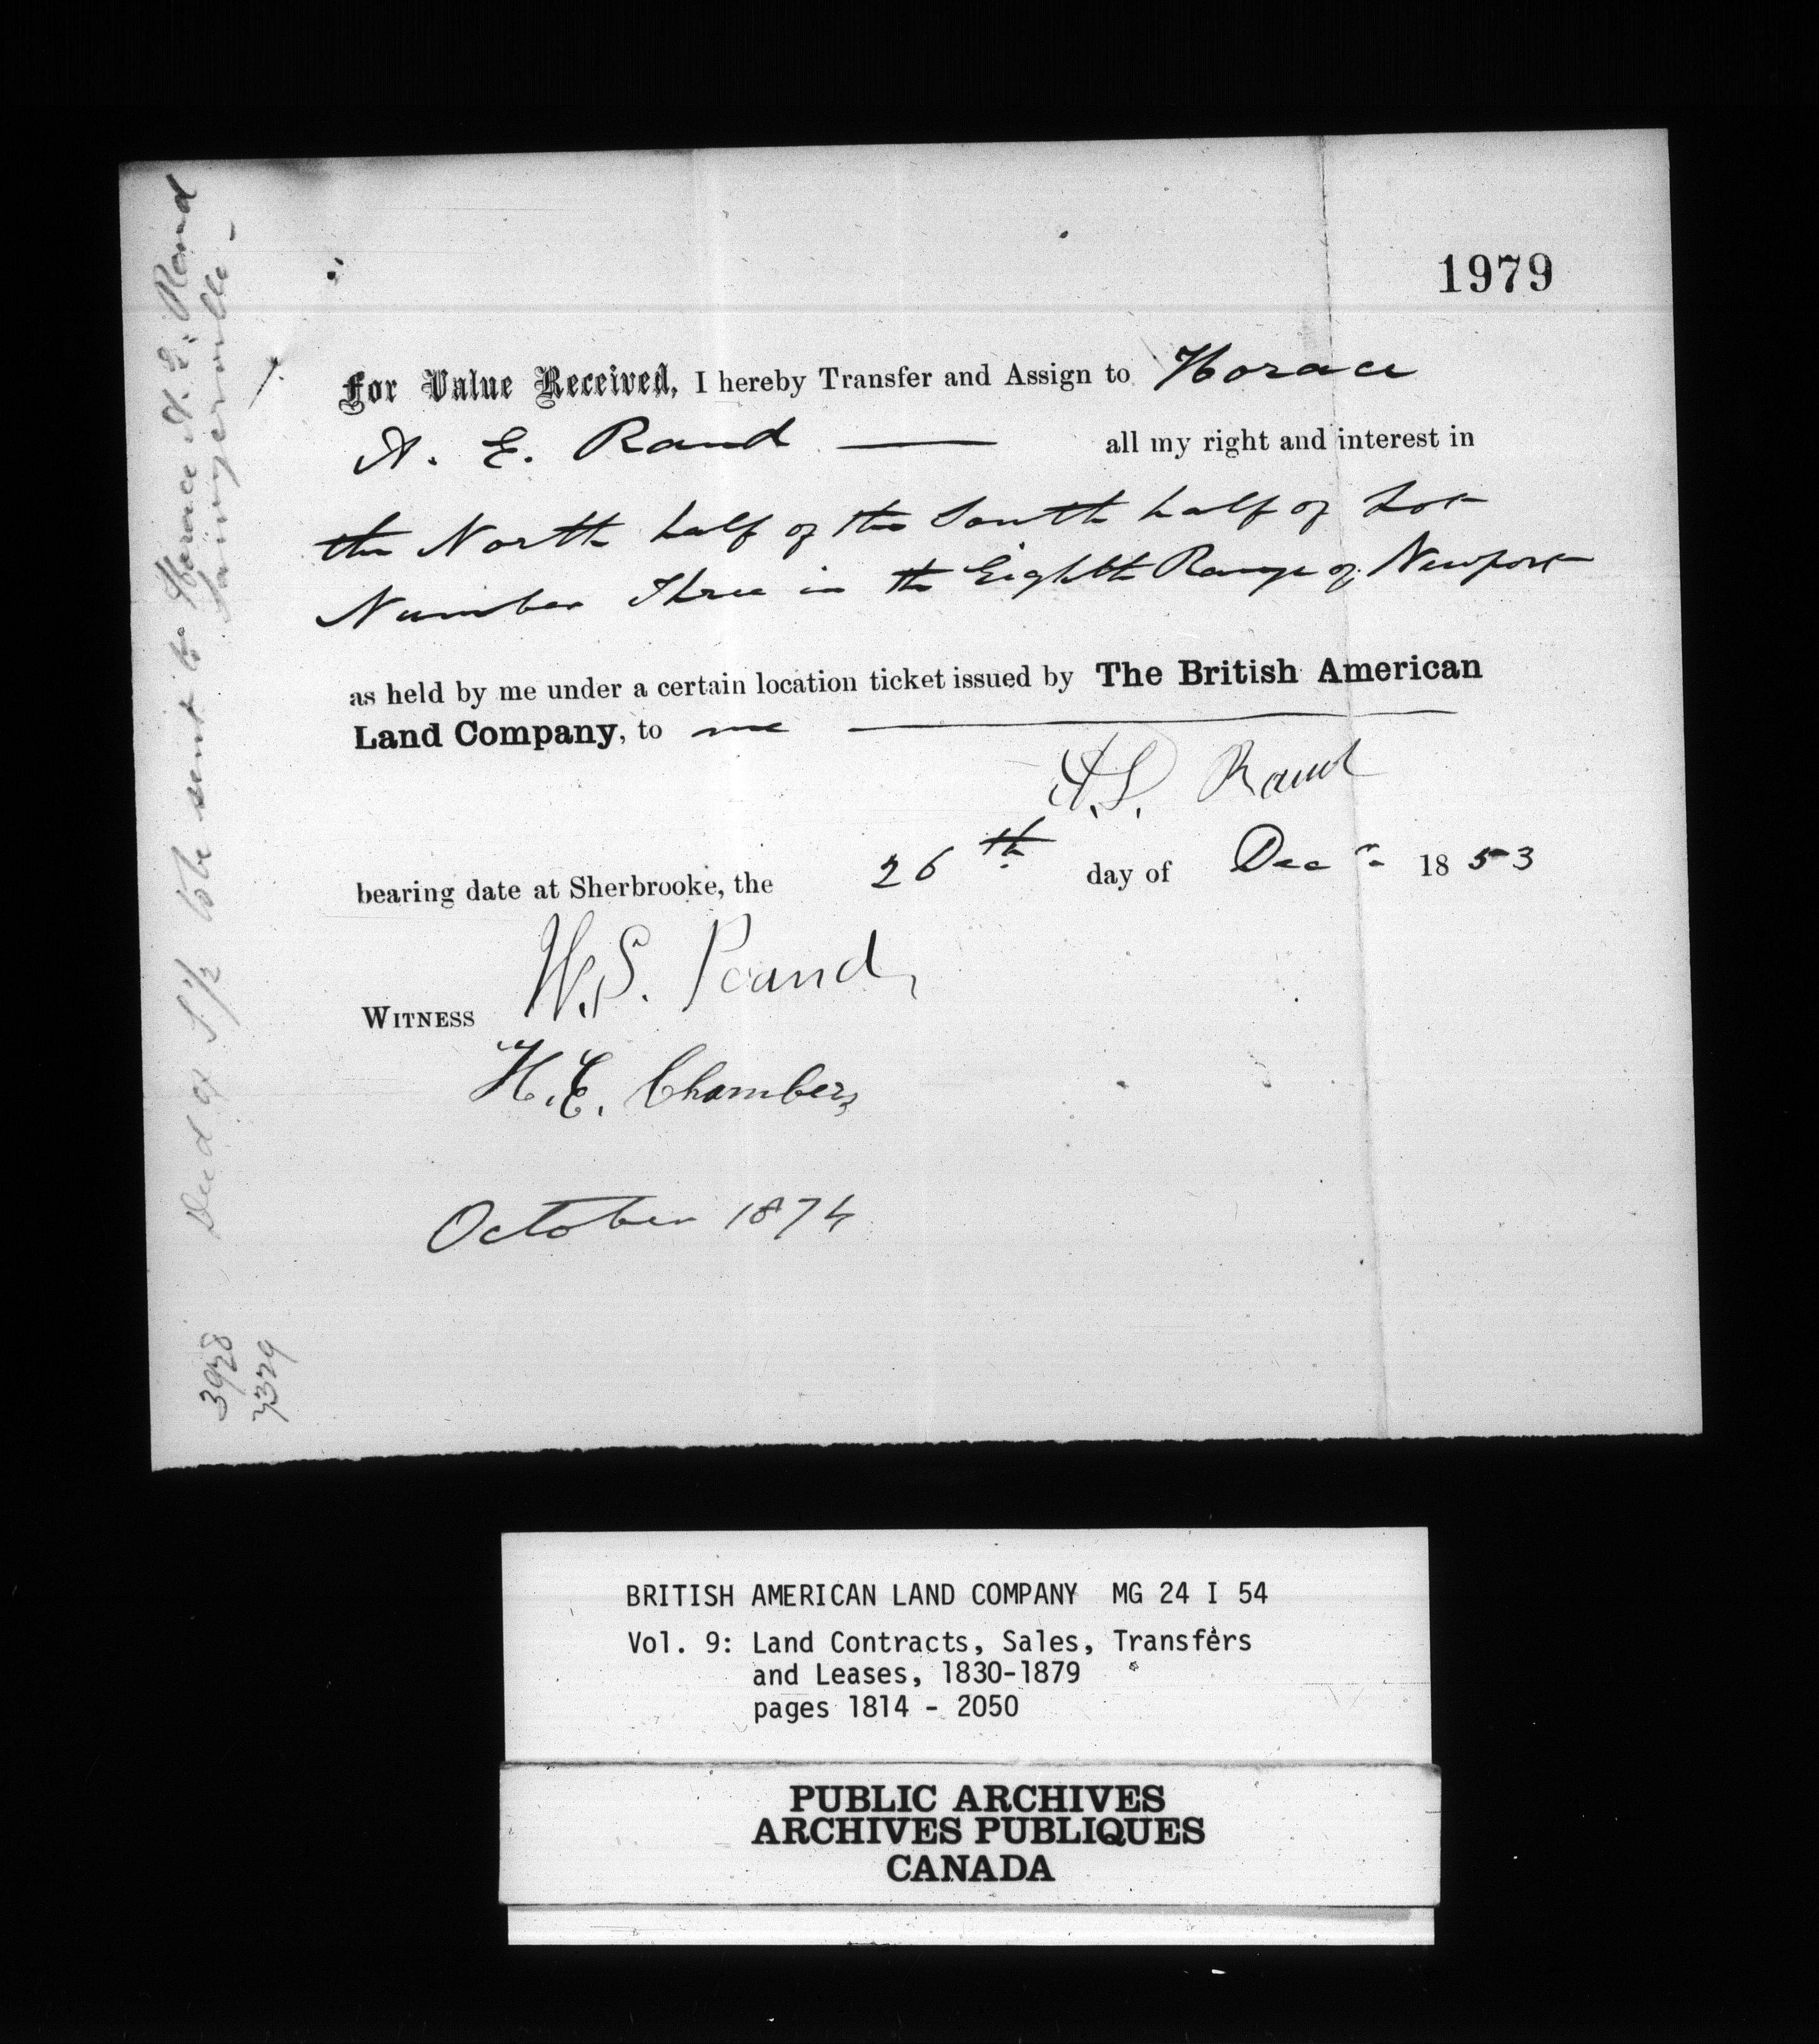 1979
For Value Received, I hereby Transfer and Assign to Horace
A. E. Rand — all my right and interest in
the North half of the South half of Lot
Number Three in the Eighth Range of Newport
as held by me under a certain location ticket issued by The British American
Land Company, to me —
A. S. Rand
bearing date at Sherbrooke, the 26th day of Decr 1853
WITNESS W. S. Rand
H. E. Chambers
October 1874
Deed of S 1/2 to be sent to Horace A. E. Rand
Sawyerville -
3928
7329
BRITISH AMERICAN LAND COMPANY MG 24 I 54
Vol. 9: Land Contracts, Sales, Transfers
and Leases, 1830-1879
pages 1814 - 2050
PUBLIC ARCHIVES
ARCHIVES PUBLIQUES
CANADA